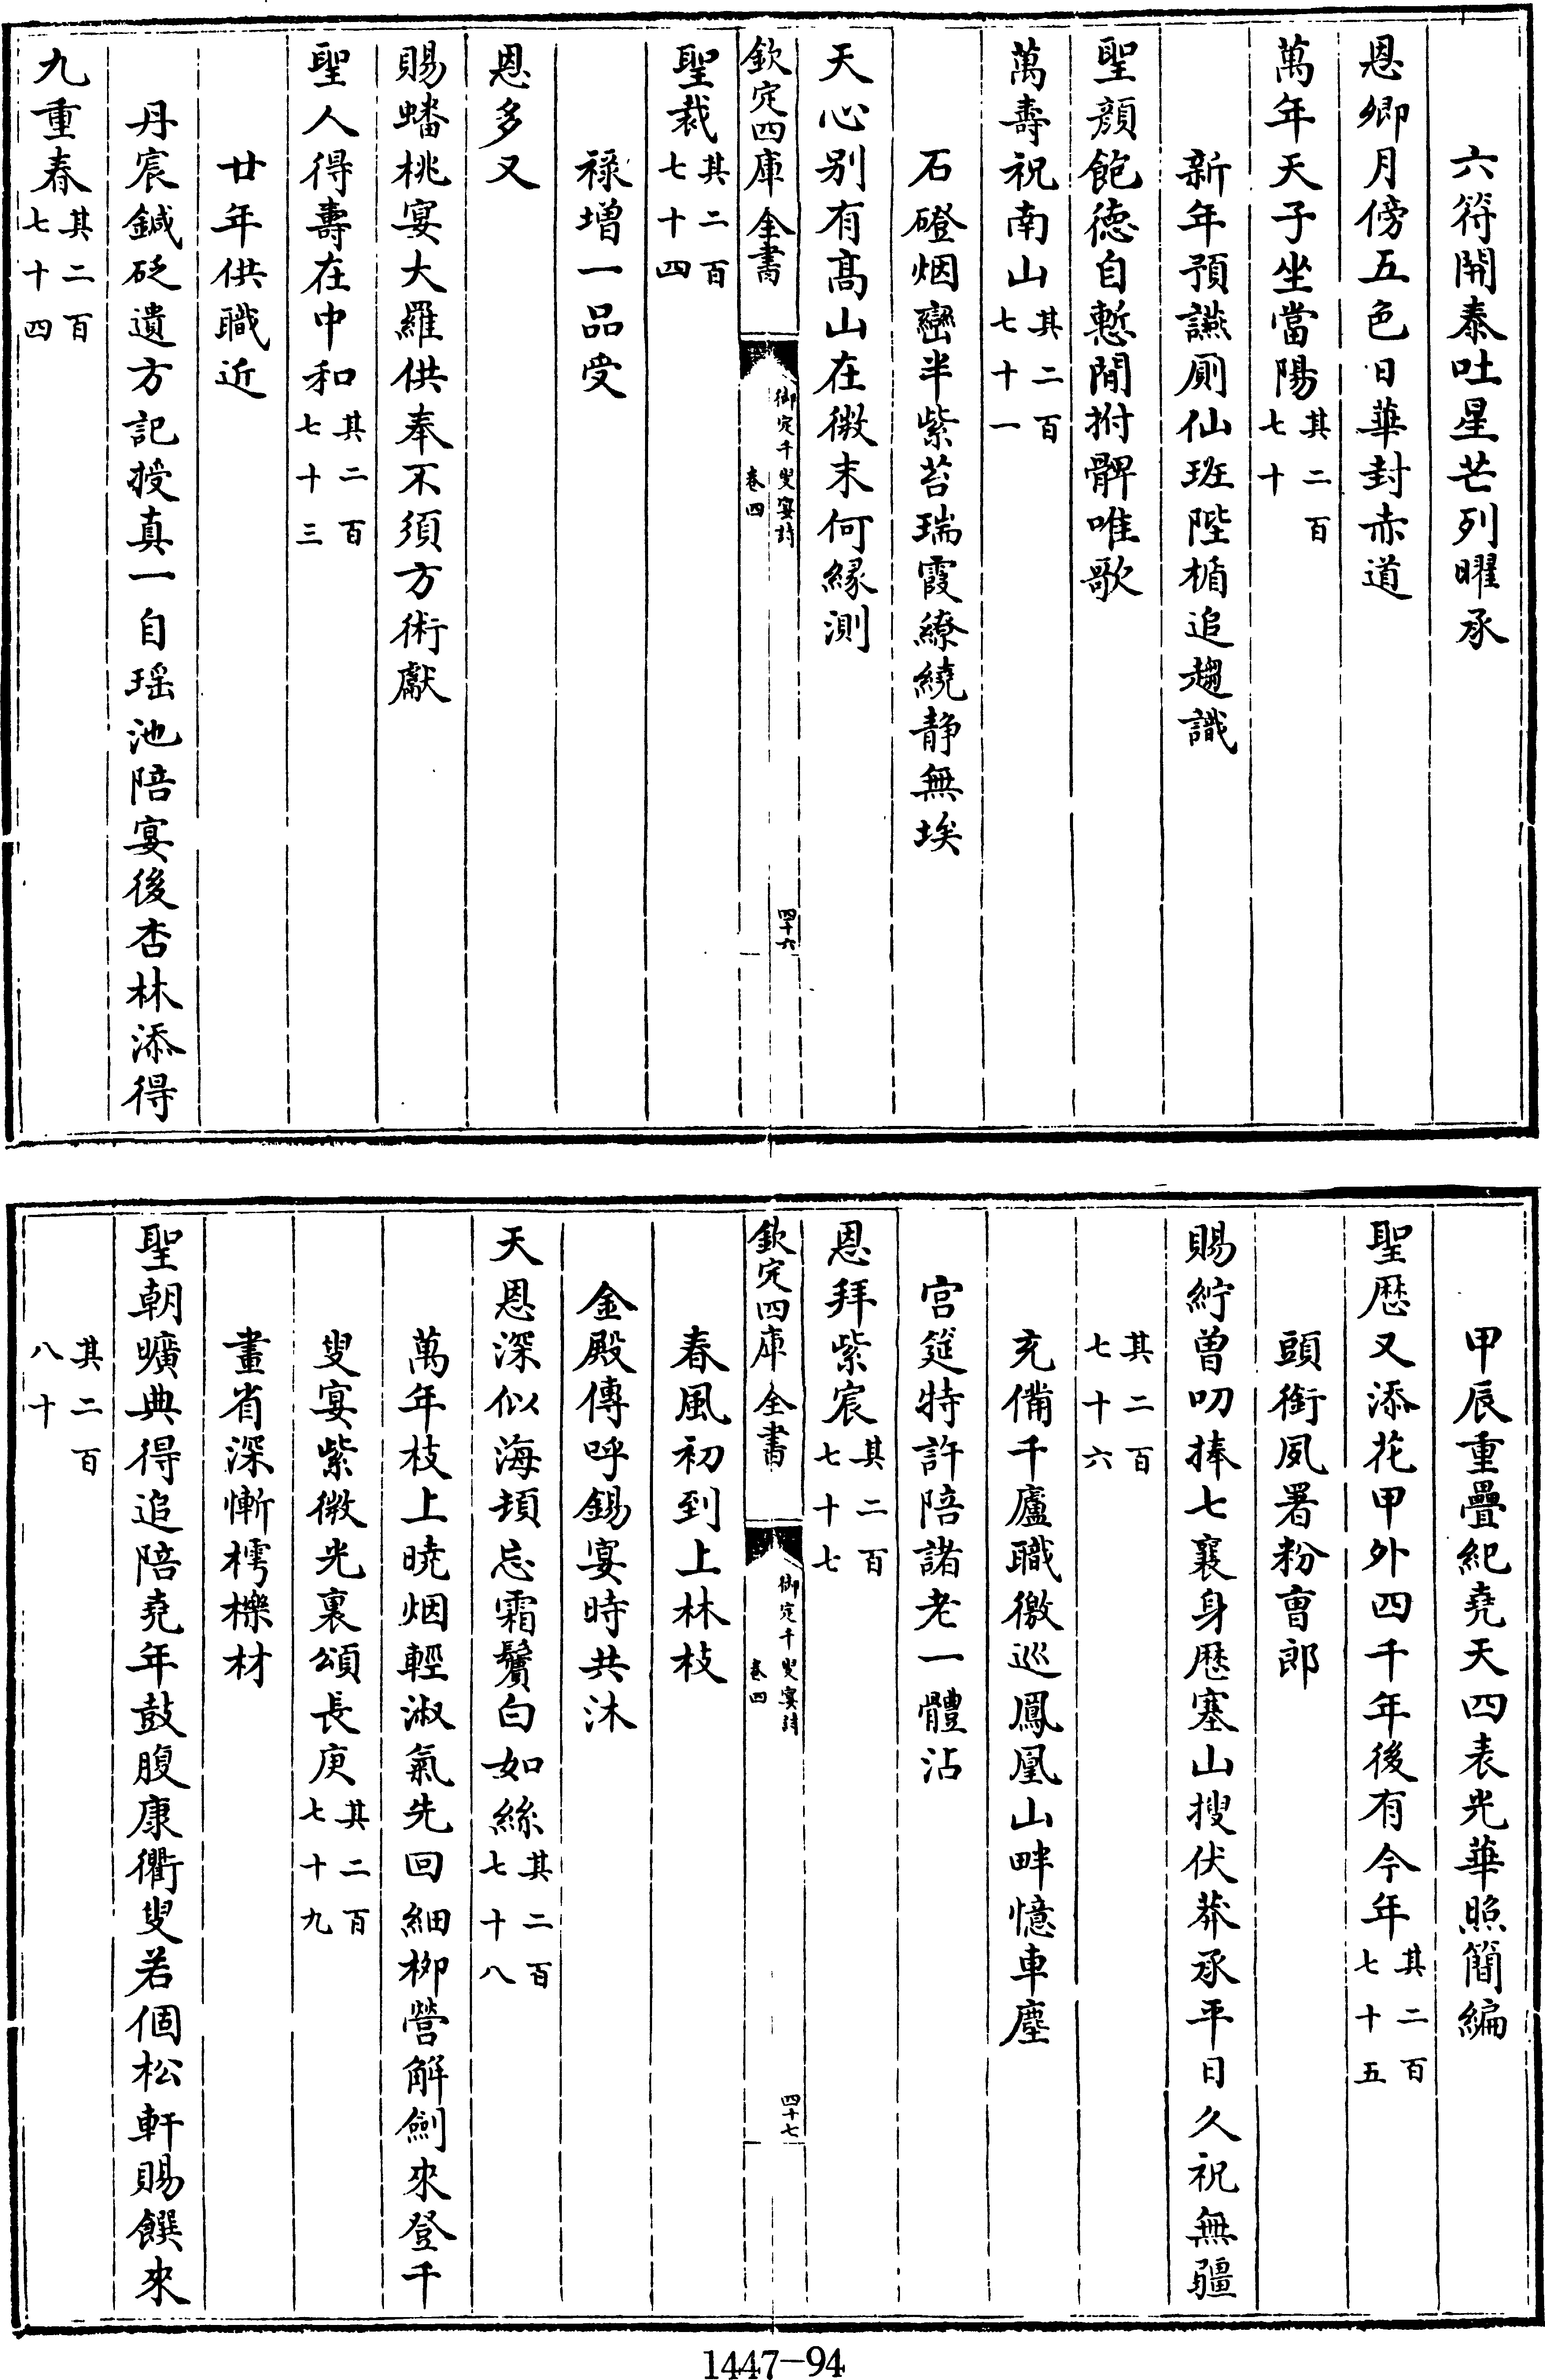 六符開泰吐星芒列曜承
恩卿月傍五色日華封赤道
萬年天子坐當陽其二百七十
新年預讌厠仙班陛楯追趨識
聖顔飽德自慙閒拊髀唯歌
萬壽祝南山其二百七十一
石磴烟巒半紫苔瑞霞繚繞静無埃
天心别有髙山在微末何縁測
欽定四庫全書
御定千叟宴詩
卷四
四十六
聖裁其二百七十四
祿增一品受
恩多又
賜蟠桃宴大羅供奉不須方術獻
聖人得壽在中和其二百七十三
廿年供職近
丹宸鍼砭遺方記授真一自瑶池陪宴後杏林添得
九重春其二百七十四
甲辰重疊紀堯天四表光華照簡編
聖歴又添花甲外四千年後有今年其二百七十五
頭銜夙署粉曹郎
賜紵曾叨捧七襄身歴塞山搜伏莽承平日久祝無疆
其二百七十六
充備千廬職徼巡鳳凰山畔憶車塵
宫筵特許陪諸老一體沾
恩拜紫宸其二百七十七
欽定四庫全書
御定千叟宴詩
卷四
四十七
春風初到上林枝
金殿傳呼錫宴時共沐
天恩深似海頓忘霜鬢白如絲其二百七十八
萬年枝上曉烟輕淑氣先回細柳營解劍來登千
叟宴紫微光裏頌長庚其二百七十九
畫省深慚樗櫟材
聖朝曠典得追陪堯年鼓腹康衢叟若個松軒賜饌來
其二百八十
1447-94